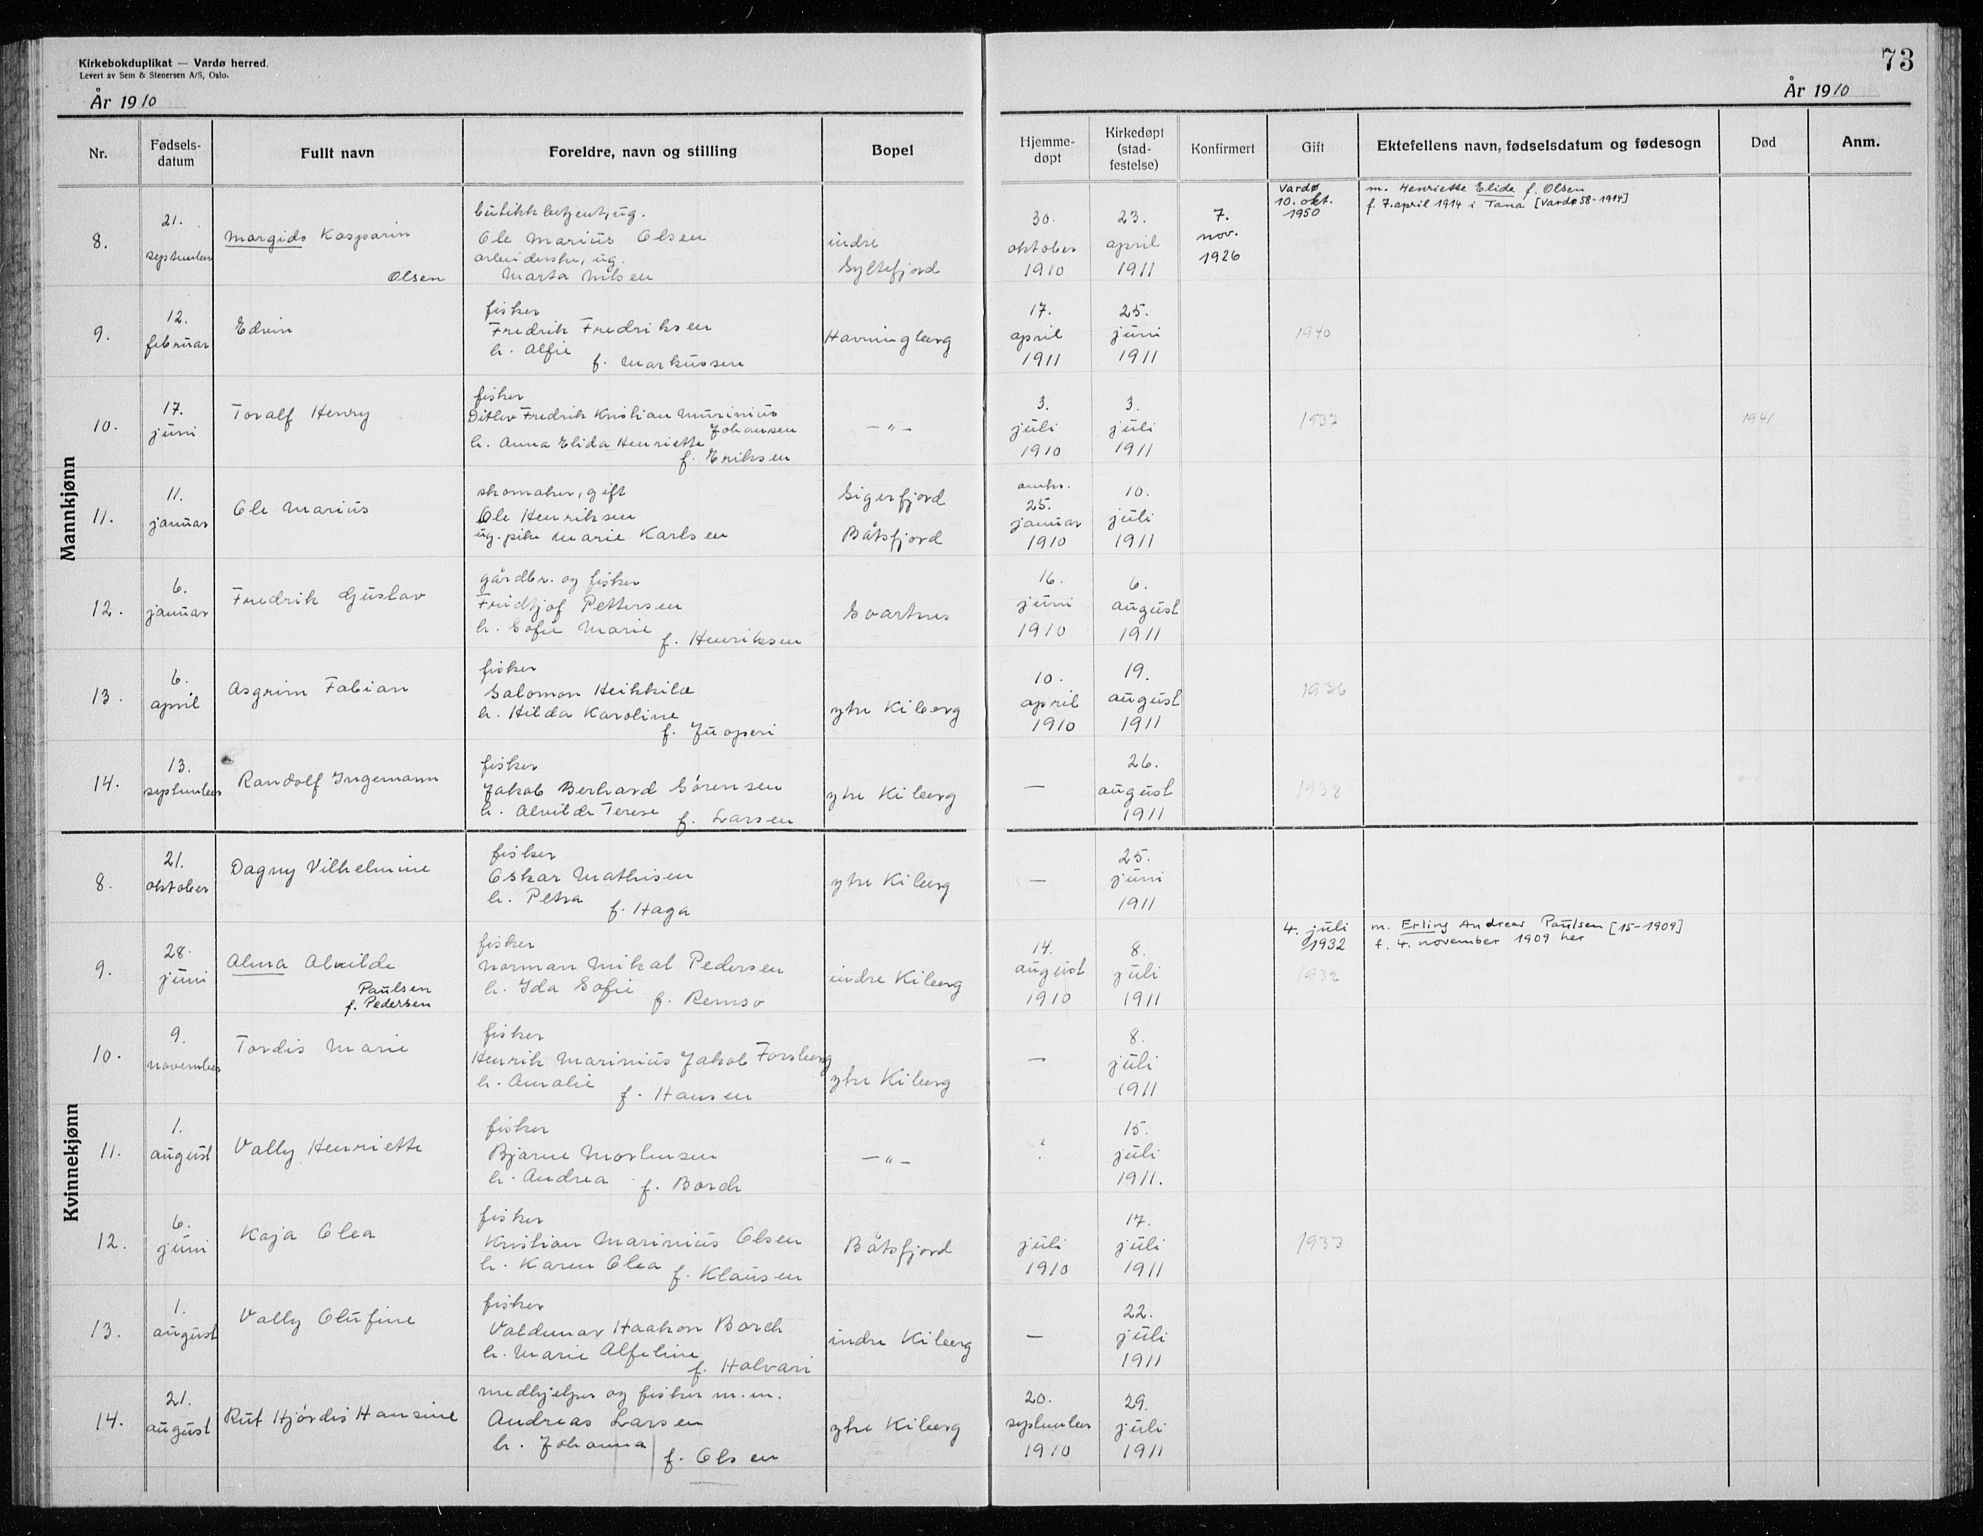 Kirkebokduplikat — Vardø herred.
Levert av Sem & Stenersen A/S, Oslo.
År 1910
73
År 1910
Nr. Fødselsdatum Fullt navn Foreldre, navn og stilling Bopel Hjemmedøpt Kirkedøpt (stadfestelse) Konfirmert Gift Ektefellens navn, fødselsdatum og fødesogn Død Anm.
Mannkjønn
8.
21.
september
Margido Kasparin
Olsen
butikkbetjent, ug.
Ole Marius Olsen
arbeiderske, ug.
Marta Nilsen
indre
Syltefjord
30.
oktober
1910
23.
april
1911
7.
nov.
1926
Vardø
10. okt.
1950
m. Henriette Elide f. Olsen
f. 7. april 1914 i Tana [Vardø 58-1914]
9.
12.
februar
Edvin
fisker
Fredrik Fredriksen
h. Alfie
f. Markussen
Havningberg
17.
april
1911
25.
juni
1911
1940
10.
17.
juni
Toralf Henry
fisker
Ditlev Fredrik Kristian Murinius
Johansen
h. Anna Elida Henriette
f. Eriksen
— " —
3.
juli
1910
3.
juli
1911
1937
1941
11.
11.
januar
Ole Marius
skomaker, gift
Ole Henriksen
ug. pike Marie Karlsen
Sigerfjord
Båtsfjord
25.
januar
1910
10.
juli
1911
12.
6.
januar
Fredrik Gustav
gårdbr. og fisker
Fridtjof Pettersen
h. Sofie Marie
f. Henriksen
Svartnes
16.
juni
1910
6.
august
1911
13.
6.
april
Asgrim Fabian
fisker
Salomon Heikkilæ
h. Hilda Karoline
f. Juoperi
ytre Kiberg
10.
april
1910
19.
august
1911
1936
14.
13.
september
Randolf Ingemann
fisker
Jakob Berhard Sørensen
h. Alvilde Terese
f. Larsen
ytre Kiberg
—
26.
august
1911
1938
Kvinnekjønn
8.
21.
oktober
Dagny Vilhelmine
fisker
Oskar Mathisen
h. Petra
f. Haga
ytre Kiberg
—
25.
juni
1911
9.
28.
juni
Alma Alvilde
Paulsen
f. Pedersen
fisker
Norman Mikal Pedersen
h. Ida Sofie
f. Remso
indre Kiberg
14.
august
1910
8.
juli
1911
4. juli
1932
1932
m. Erling Andreas Paulsen [15-1909]
f. 4. november 1909 her
10.
9.
november
Tordis Marie
fisker
Henrik Marinius Jakob Forsberg
h. Amalie
f. Hansen
ytre Kiberg
—
8.
juli
1911
11.
1.
august
Vally Henriette
fisker
Bjarne Mortensen
h. Andrea
f. Borch
— " —
?
15.
juli
1911.
12.
6.
juni
Kaja Olea
fisker
Kristian Marinius Olsen
h. Karen Olea
f. Klausen
Båtsfjord
juli
1910
17.
juli
1911
1933
13.
1.
august
Vally Olufine
fisker
Valdemar Haakon Borch
h. Marie Alfeline
f. Halvari
indre Kiberg
—
22.
juli
1911
14.
21.
august
Rut Hjørdis Hansine
medhjelper og fisker m.m.
Andreas Larsen
h. Johanna
f. Olsen
ytre Kiberg
20.
september
1910
29.
juli
1911